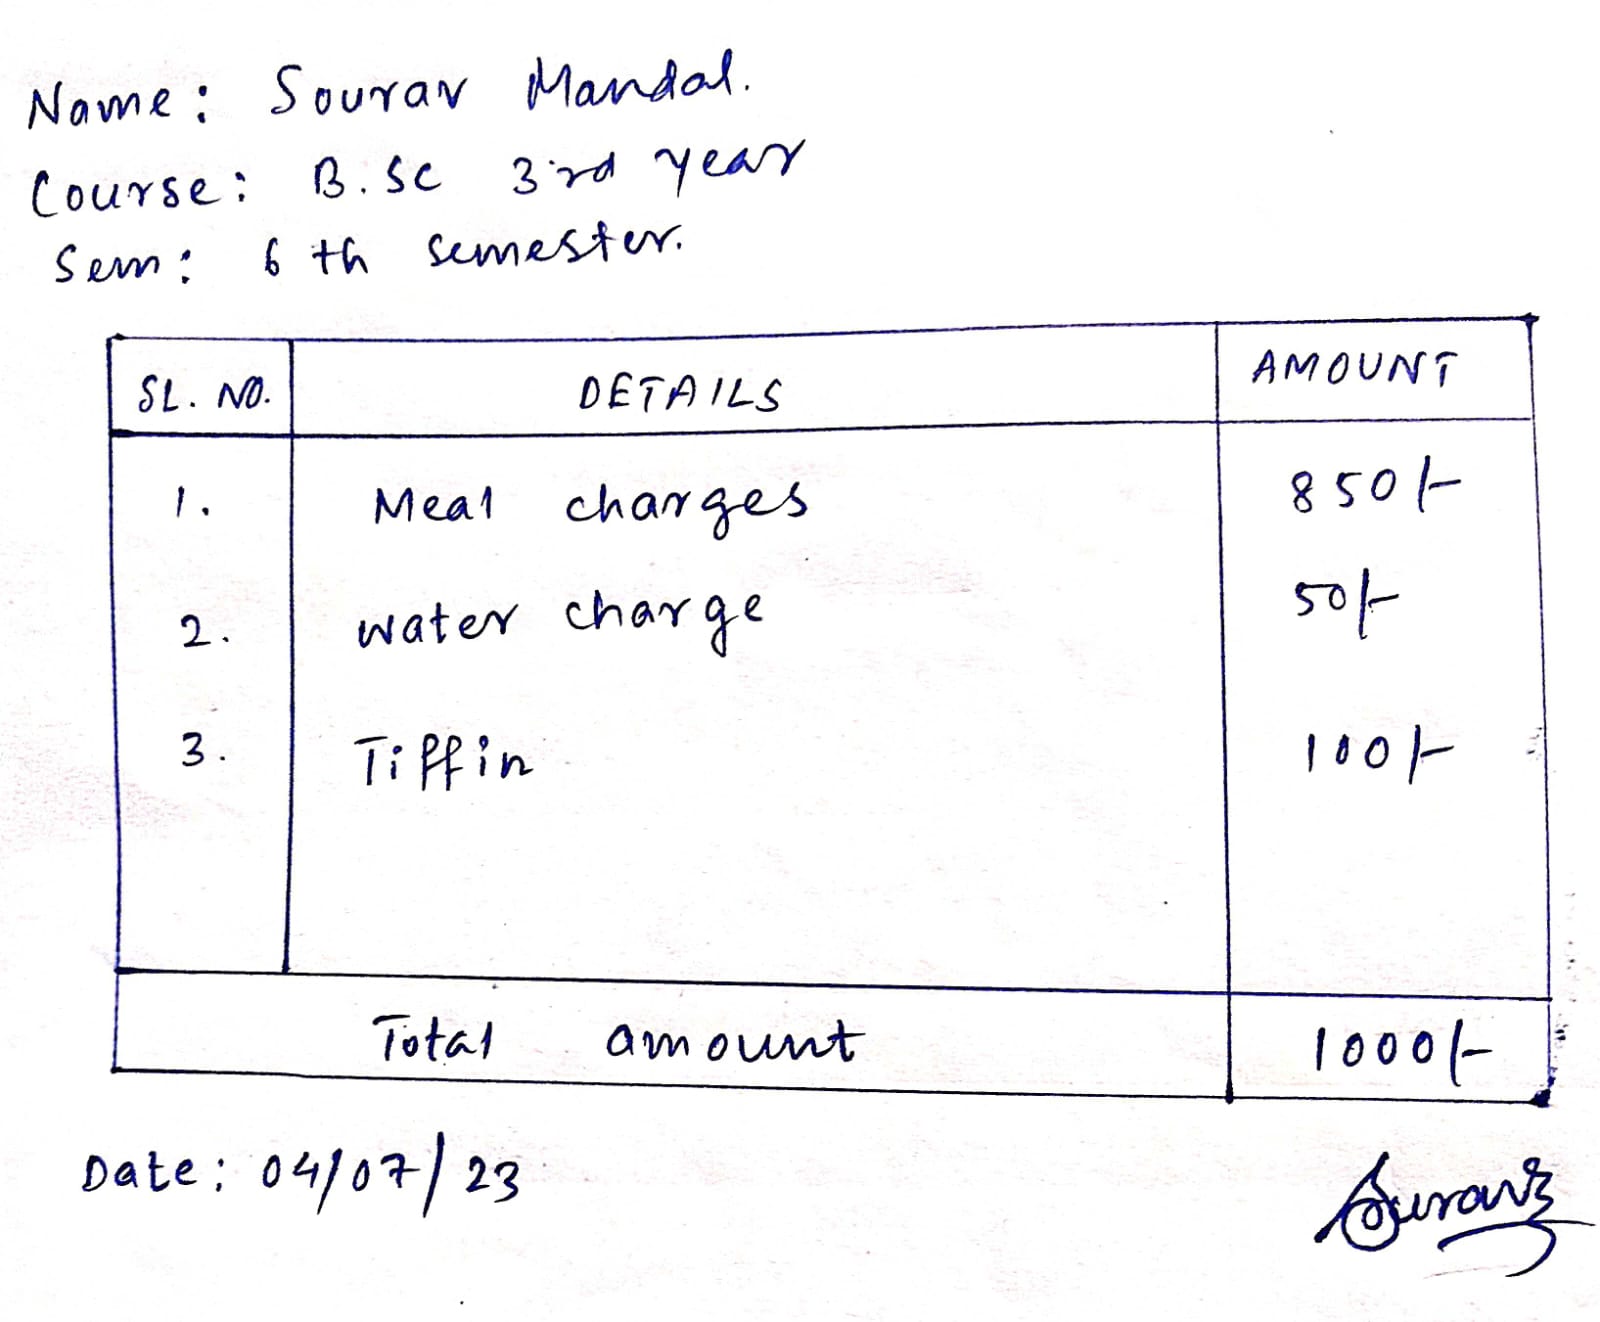 Name: Sourav Mandal.
Course: B.Sc 3rd year
Sem: 6th semester.
SL. NO. DETAILS AMOUNT
1. Meal charges 850/-
2. water charge 50/-
3. Tiffin 100/-
Total amount 1000/-
Date: 04/07/23